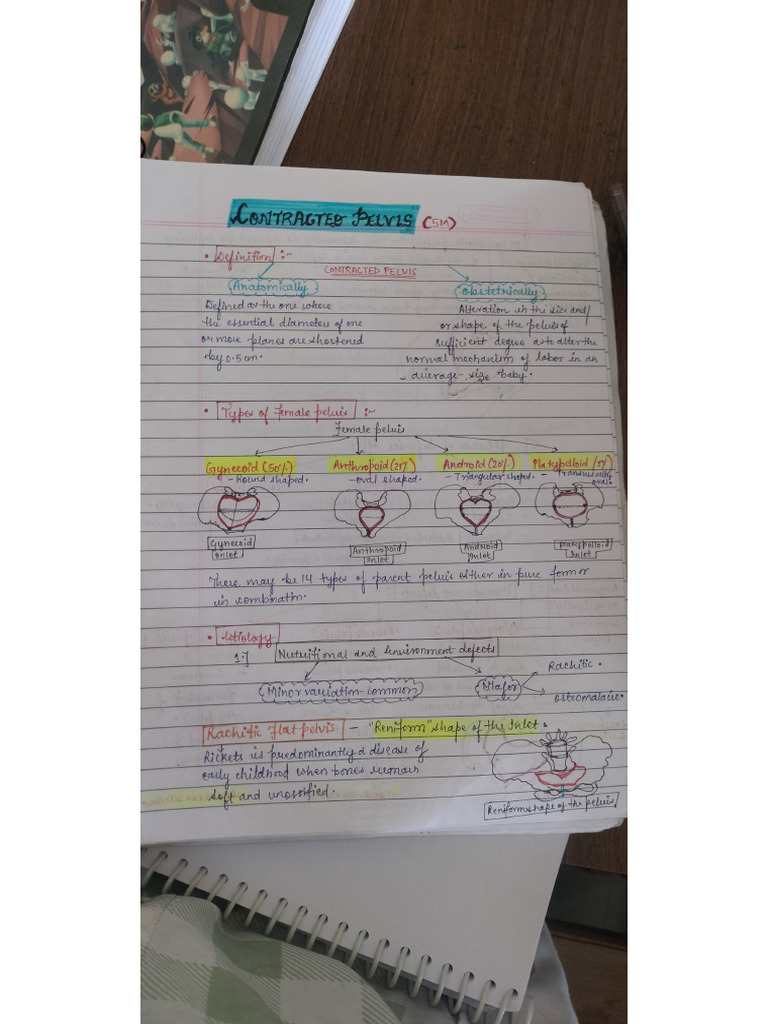 CONTRACTED PELVIS (5M)
• Definition :-
CONTRACTED PELVIS
Anatomically
Defined as the one where
the essential diameter of one
or more planes are shortened
by 0.5 cm.
Obstetrically
Alteration in the size and/
or shape of the pelvis of
sufficient degree as to alter the
normal mechanism of labor in an
average-size baby.
• Types of Female pelvis :-
Female pelvis
Gynecoid (50%) Anthropoid (25%) Android (20%) Platypelloid (5%)
- Round shaped. - oval shaped. - Triangular shaped. - Transversally
oval.
Gynecoid
inlet
Anthropoid
inlet
Android
inlet
platypelloid
inlet
There may be 14 types of parent pelvis either in pure form or
in combinatn.
• Etiology
1.] Nutritional and environment defects
Minor variation-common
Major
Rachitic.
osteomalacic.
Rachitic Flat pelvis - "Reniform" shape of the Inlet.
Rickets is predominantly a disease of
early childhood when bones remain
soft and unossified.
Reniform shape of the pelvis